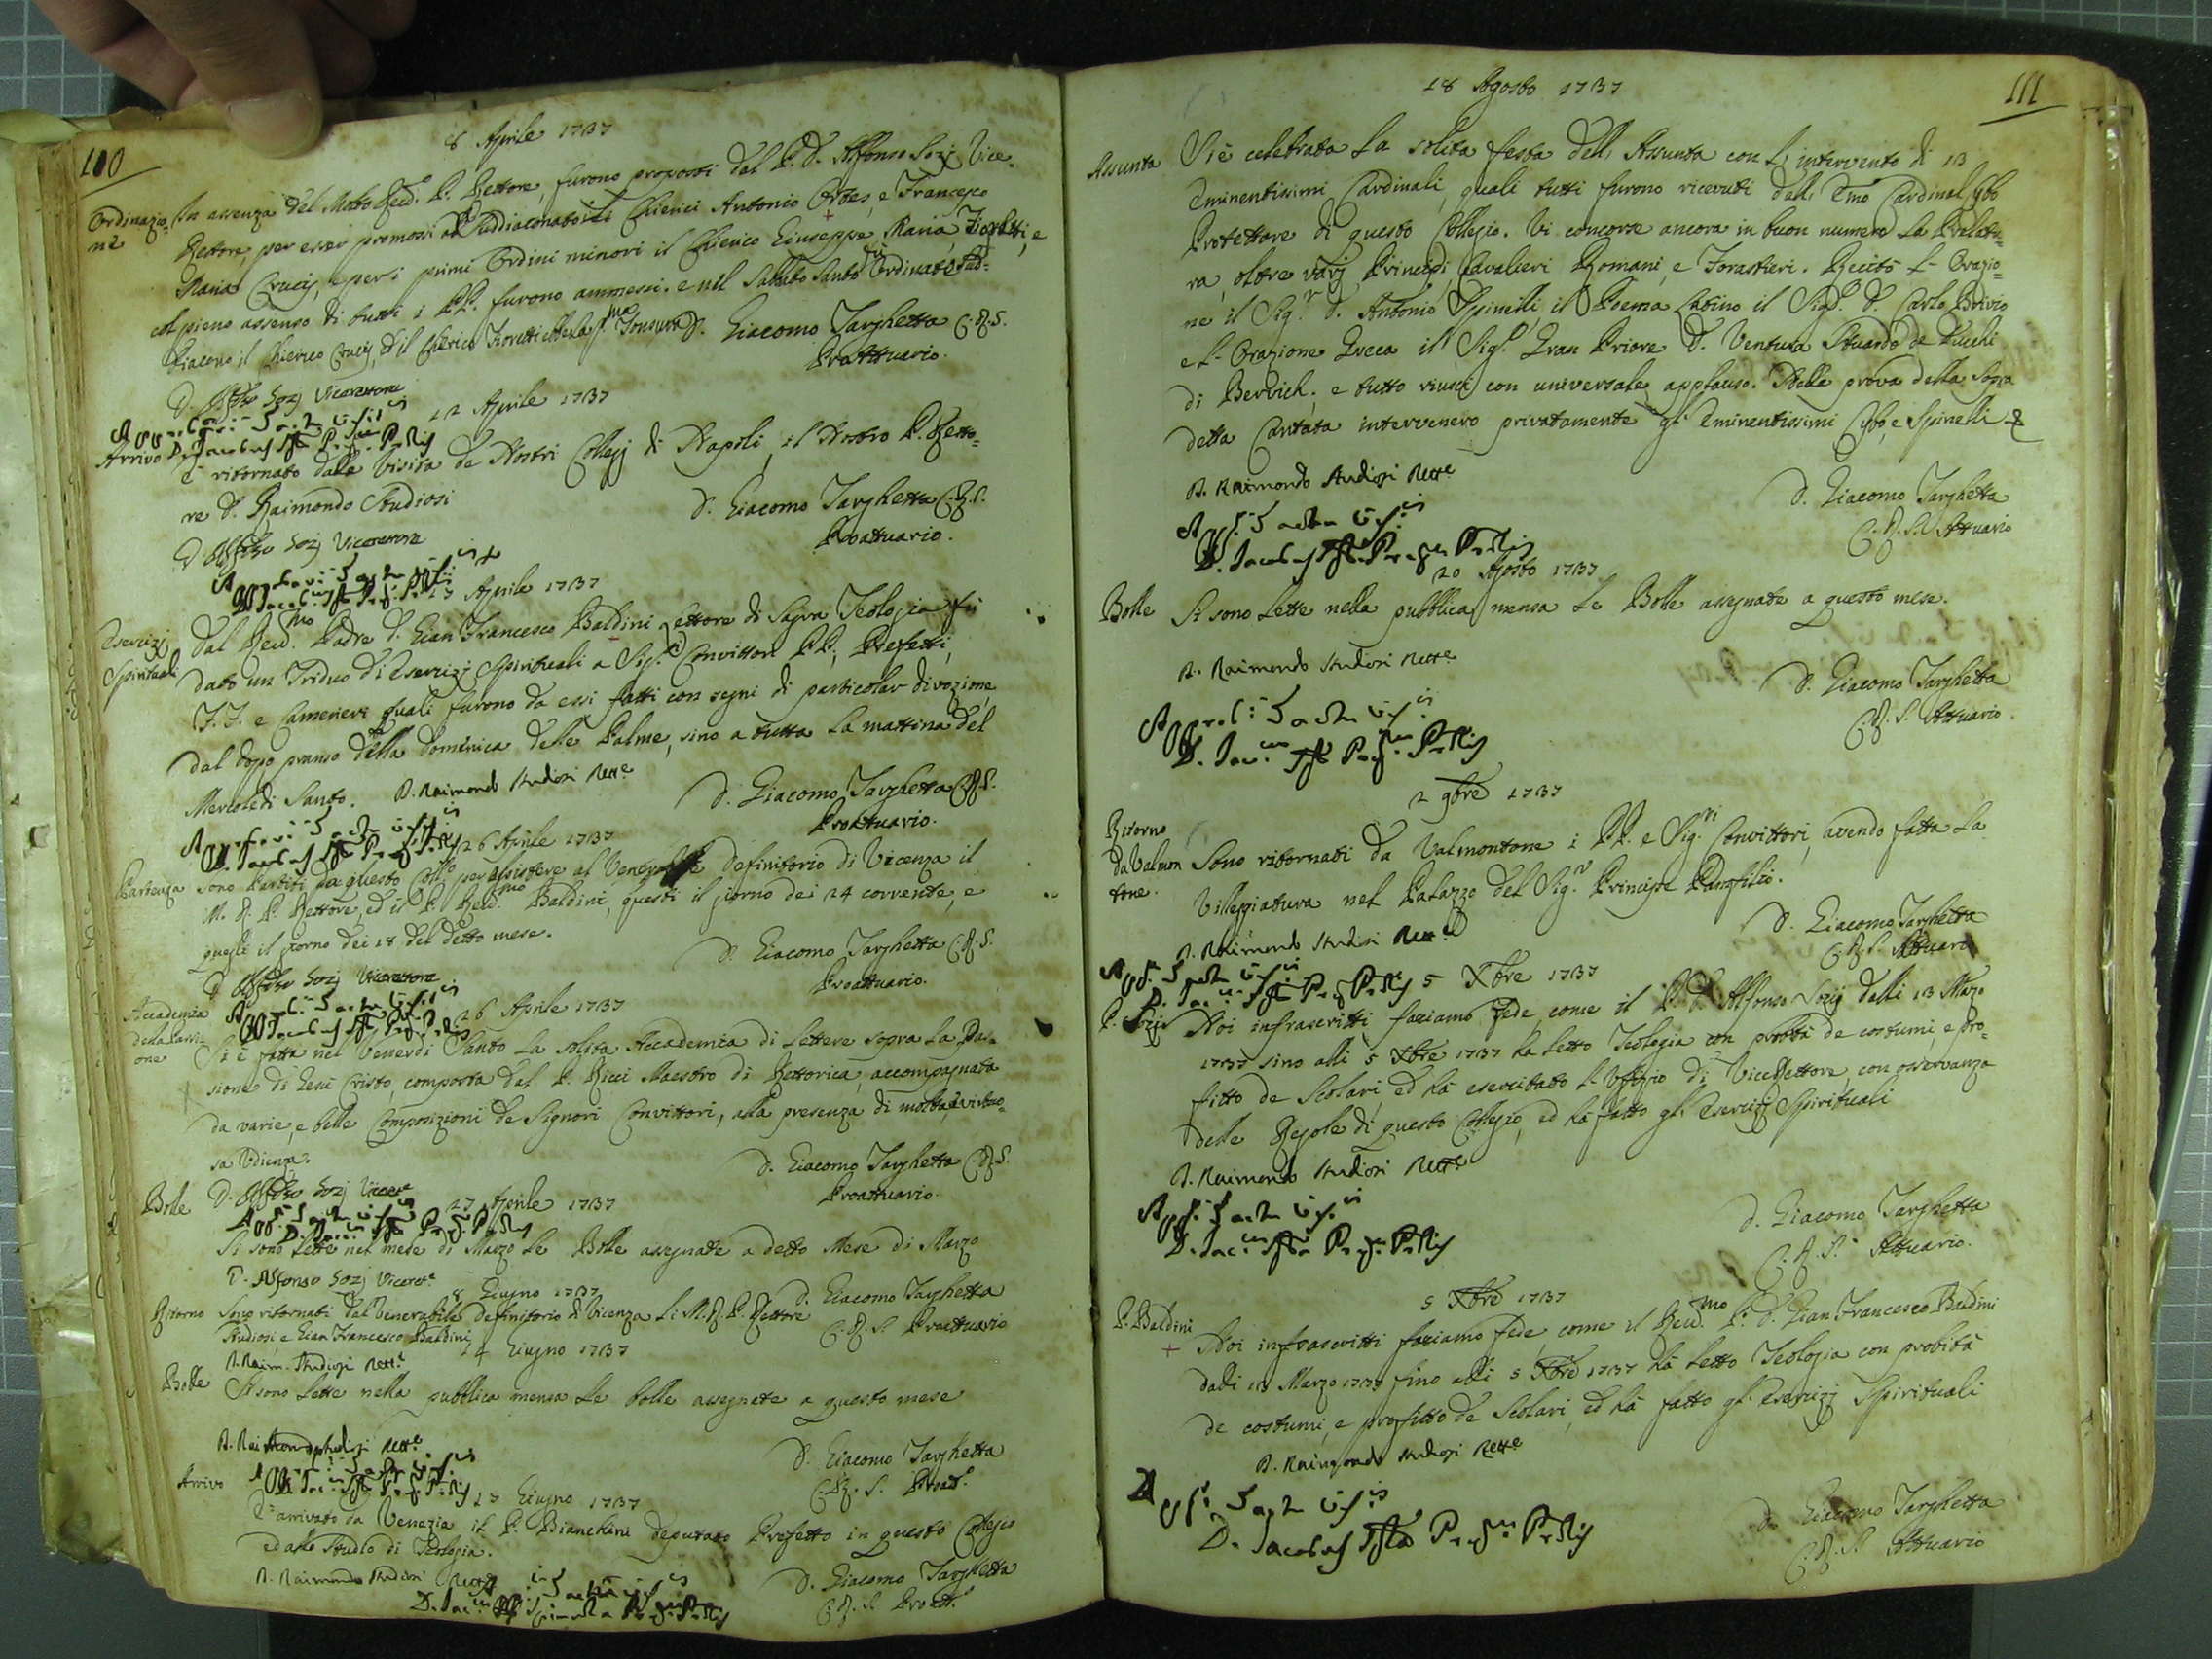 110
8 Aprile 1737
Ordinazio-
ne
In assenza del Molto Revd.º P. Rettore, furono proposti dal P. D. Alfonso Sozj Vice-
Rettore, per esser promossi al Suddiaconato i Chierici Antonio Cortes, e Francesco
Maria Crucij, e per i primi Ordini minori il Chierico Giuseppe Maria Fioretti, e
col pieno assenso di tutti i PP. furono ammessi. e nel Sabbato Santo fu Ordinato Sud-
Diacono il Chierico Crucij, ed il Chierico Fioretti ebbe la p.ma Tonsura
D. Giacomo Targhetta C.R.S.
Proattuario.
D. Alfonso Sozj Vicerettore
12 Aprile 1737
Arrivo
È ritornato dalla Visita de Nostri Collegj di Napoli, il Nostro P. Retto-
re D. Raimondo Studiosi
D. Giacomo Targhetta C.R.S.
Proattuario.
D Alfonso Sozj Vicerettore
17 Aprile 1737
Esercizj
Spirituali
Dal Revd.mo Padre D. Gian Francesco Baldini Lettore di Sagra Teologia fù
dato un Triduo di Esercizj Spirituali a Sig.ri Convittori PP. Prefetti,
F.F. e Camerieri quali furono da essi fatti con segni di particolar divozione,
dal dopo pranso della Domenica delle Palme, sino a tutta la mattina del
Mercoledì Santo.
D. Raimondo Studiosi Rett.e
D. Giacomo Targhetta C.R.S.
Proattuario.
26 Aprile 1737
Partenza
Sono Partiti da questo Coll.º per assistere al Venerabile Definitorio di Vicenza il
M. R. P. Rettore, ed il P. Revd.mo Baldini, questi il giorno dei 24 corrente, e
quegli il giorno dei 18 del detto mese.
D. Giacomo Targhetta C.R.S.
Proattuario.
D Alfonso Sozj Vicerettore
26 Aprile 1737
Accademia
della Passi-
one
Si è fatta nel Venerdì Santo la solita Accademia di Lettere sopra la Pas-
sione di Gesù Cristo, composta dal P. Ricci Maestro di Rettorica, accompagnata
da varie, e belle Composizioni de Signori Convittori, alla presenza di molta, e virtuo-
sa Udienza.
D. Giacomo Targhetta C.R.S.
Proattuario.
D. Alfonso Sozj Vicere
27 Aprile 1737
Bolle
Si sono Lette nel mese di Marzo le Bolle assegnate a detto Mese di Marzo
D. Alfonso Sozj Viceret.e
D. Giacomo Targhetta
C.R.S. Proattuario
8 Giugno 1737
Ritorno
Sono ritornati dal Venerabile Definitorio di Vicenza Li M.R.P. Rettore
Studiosi, e Gian Francesco Baldini
D. Raim. Studiosi Rett.e
14 Giugno 1737
Bolle
Si sono Lette nella pubblica mensa Le bolle assegnate a questo mese
D. Raimondo Studiosi Rett.e
D. Giacomo Targhetta
C.R.S. Proatt.º
17 Giugno 1737
Arrivo
È arrivato da Venezia il P. Bianchini deputato Prefetto in questo Collegio
ed allo Studio di Teologia.
D. Raimondo Studiosi Rett.e
D. Giacomo Targhetta
C.R.S. Proatt.º
111
18 Agosto 1737
Assunta
Si è celebrata la solita festa dell'Assunta con l'intervento di 13
Eminentissimi Cardinali, quali tutti furono ricevuti dall'Emo Cardinal Cybo
Protettore di questo Collegio. Vi concorse ancora in buon numero la Prelatu-
ra, oltre varj Principi, Cavalieri Romani, e Forastieri. Recitò l'Orazio-
ne il Sig.r D. Antonio Spinelli, il Poema Latino il Sig.r D. Carlo Brivio
e l'Orazione Greca il Sig.r Gran Priore D. Ventura Stuardo de Duchi
di Bervich, e tutto riuscì con universale applauso. Nella prova della Sopra
detta Cantata intervenero privatamente gl'Eminentissimi Cybo, e Spinelli
D. Raimondo Studiosi Rett.e
D. Giacomo Targhetta
C.R.S. Attuario
20 Agosto 1737
Bolle
Si sono Lette nella pubblica mensa Le Bolle assegnate a questo mese.
D. Raimondo Studiosi Rett.e
D. Giacomo Targhetta
C.R.S. Attuario.
2 9bre 1737
Ritorno
da Valmon
tone.
Sono ritornati da Valmontone i PP. e Sig.ri Convittori, avendo fatta la
Villeggiatura nel Palazzo del Sig.r Principe Panfilio.
D. Raimondo Studiosi Rett.e
D. Giacomo Targhetta
C.R.S. Attuario
5 Xbre 1737
P. Sozj
Noi infrascritti facciamo Fede, come il P. D. Alfonso Sozj dalli 13 Marzo
1737 sino alli 5 Xbre 1737 hà letto Teologia con probità de costumi, e pro-
fitto de Scolari, ed hà esercitato l'Uffizio di ViceRettore, con osservanza
delle Regole di questo Collegio, ed hà fatto gl'Esercizj Spirituali
D. Raimondo Studiosi Rett.e
D. Giacomo Targhetta
C.R.S. Attuario.
5 Xbre 1737
P. Baldini
Noi infrascritti facciamo Fede, come il Revd.mo P. D. Gian Francesco Baldini
dalli 13 Marzo 1737 fino alli 5 Xbre 1737 hà letto Teologia con probità
de costumi, e profitto de Scolari, ed hà fatto gl'Esercizj Spirituali
D. Raimondo Studiosi Rett.e
D. Giacomo Targhetta
C.R.S. Attuario